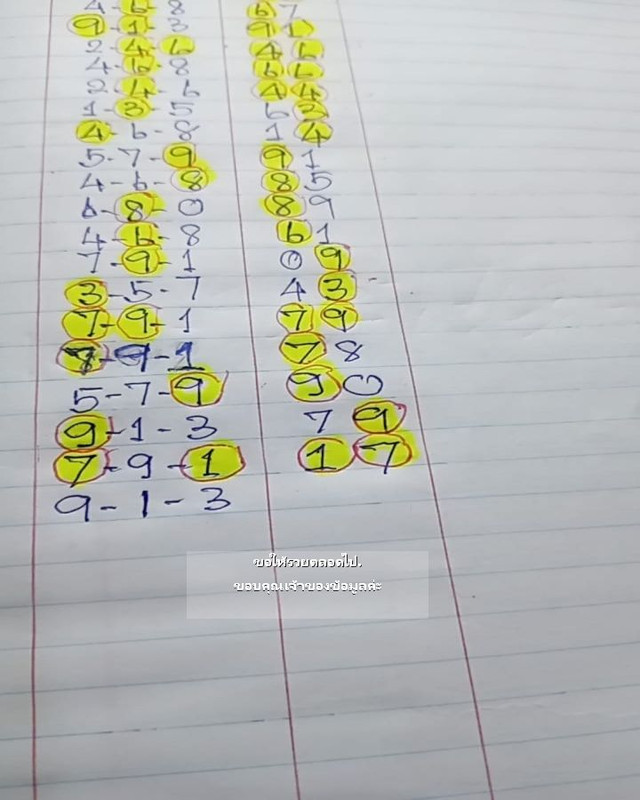 4-6-8 67
9-1-3 91
2-4-6 46
4-6-8 66
2-4-6 44
1-3-5 63
4-6-8 14
5-7-9 91
4-6-8 85
6-8-0 89
4-6-8 61
7-9-1 09
3-5-7 43
7-9-1 79
7-9-1 78
5-7-9 90
9-1-3 79
7-9-1 17
9-1-3
ขอให้รวยตลอดไป.
ขอบคุณเจ้าของข้อมูลค่ะ